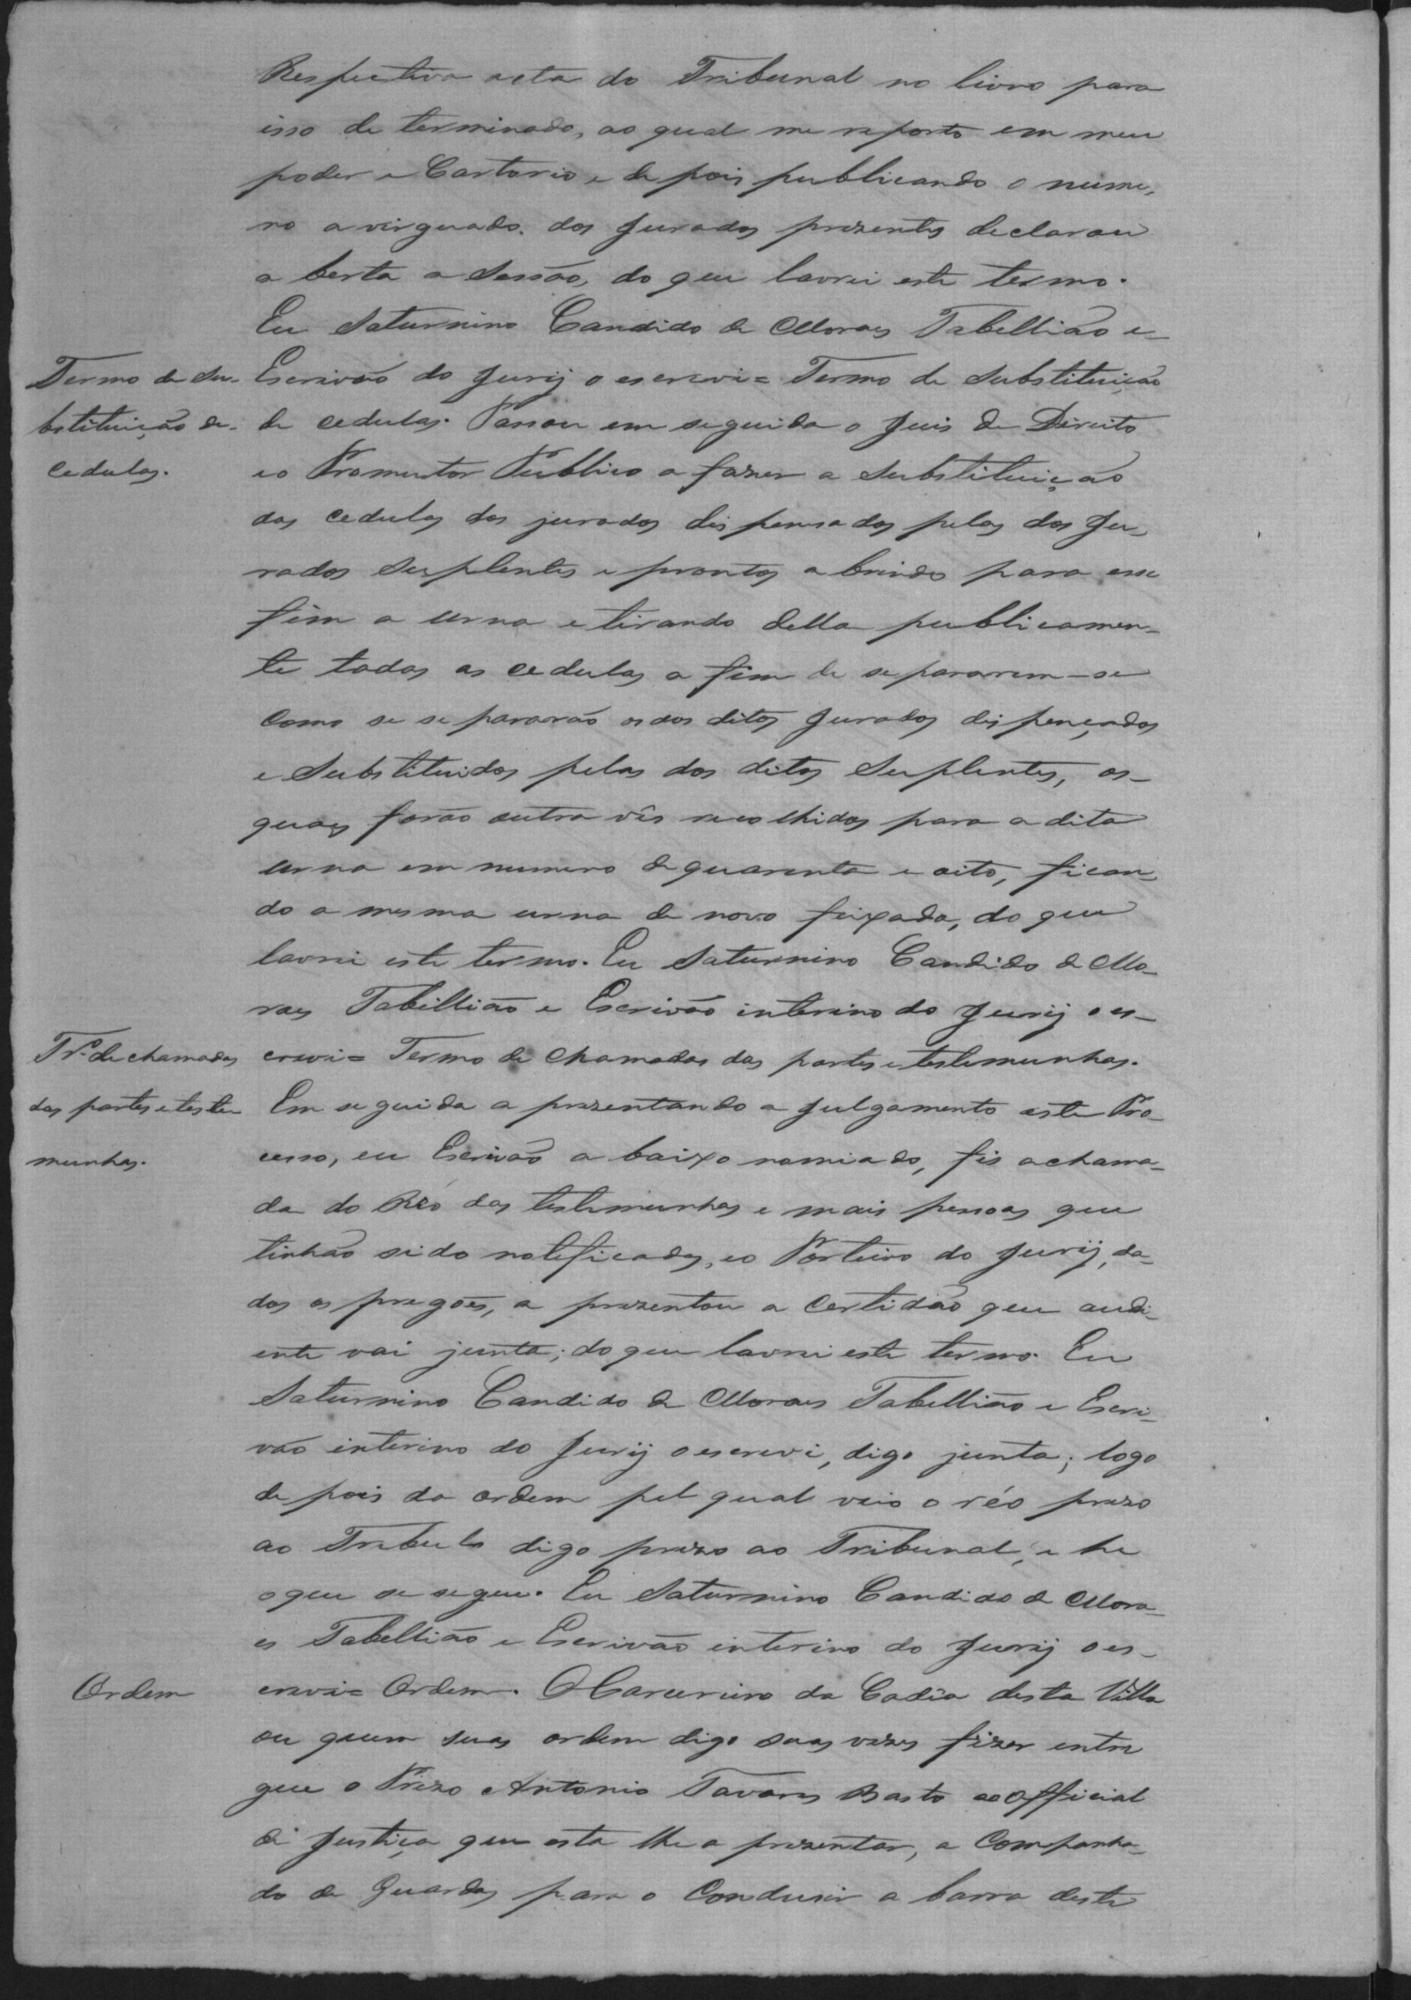 Respectiva acta do Tribunal no livro para
isso de terminado, ao qual me reporto em meu
poder e Cartorio, e de pois publicando o nume,
ro a virguado. dos Jurados prezentes declarou
a berta a Sessão, do que lavrei este termo.
Eu Saturnino Candido de Moraes Tabellião e
Termo de Su-
bstituição de
Cedulas.
Escrivão do Jury o escrevi = Termo de Substituição
de cedulas. Passou em seguida o Juis de Direito
eo Promutor Publico a fazer a Substituição
das cedulas dos jurados dispensados pelas dos Ju,
rados Suplentes e prontos abrindo para esse
fim a urna e tirando della publicamen-
te todas as cedulas a fim de se pararem-se
Como se se pararão as dos ditos Jurados dispençados
e Substituidos pelas dos ditos Suplentes, as-
quaes forão outra vês recolhidas para a dita
urna em numero de quarenta e oito, fican,
do a mesma urna de novo feixada, do que
lavrei este termo. Eu Saturnino Candido de Mo-
raes Tabillião e Escrivão interino do Jury o es-
Tr.º de chamadas
das partes e teste
munhas.
crevi = Termo de Chamadas das partes e testemunhas.
Em seguida a prezentando a Julgamento este Pro-
cesso, eu Escrivão a baixo nomiado, fis a chama-
da do Réo das testemunhas e mais pessoas que
tinhão sido notificadas, eo Porteiro do Jury, da-
dos os pregões, a prezentou a Certidão que adi-
ente vai junta; do que lavrei este termo. Eu
Saturnino Candido de Moraes Tabellião e Escri-
vão interino do Jury o escrevi, digo junta; logo
de pois da ordem pel qual veio o réo prezo
ao Trebulo digo prezo ao Tribunal, e he
o que se segue. Eu Saturnino Candido de Mora-
es Tabellião e Escrivão interino do Jury o es-
Ordem
crevi = Ordem. O Carcereiro da Cadia desta Villa
ou quem suas ordem digo suas vezes fizer entre
gue o Prezo Antonio Tavares Basto ao Official
de Justiça que esta lhe a prezentar, a Companha-
do de Guardas para o Condusir a barra deste